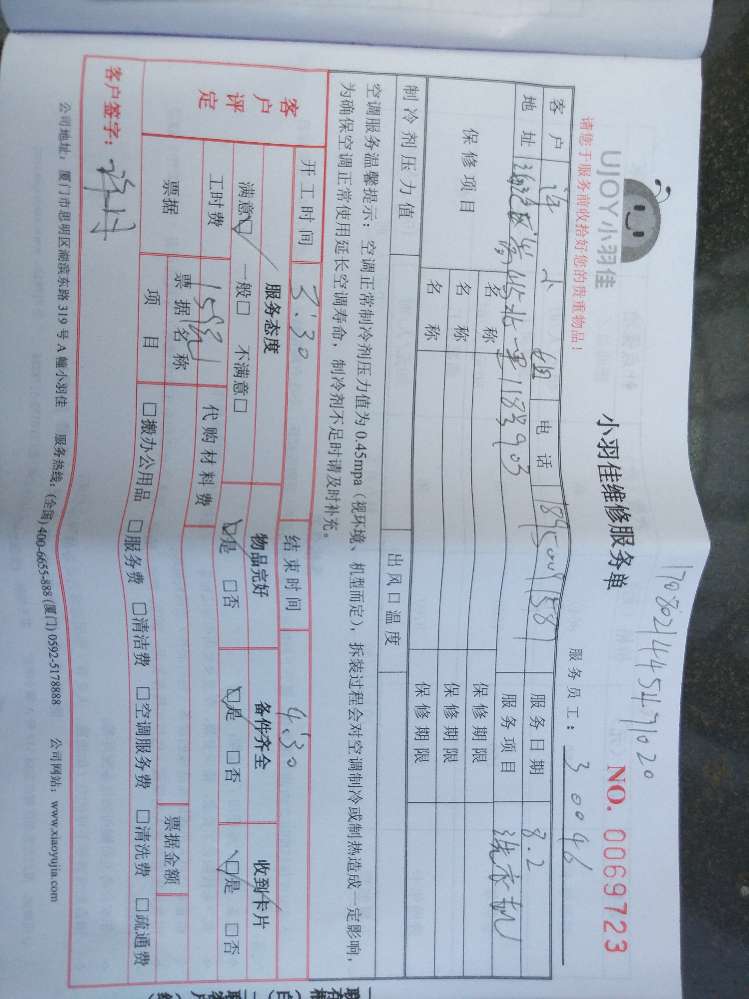 1708021445471020
UJOY小羽佳
小羽佳维修服务单
NO. 0069723
请您于服务前收拾好您的贵重物品！
服务员工：30046
客户 许小姐 电话 服务日期 8.2
地址 服务项目 洗衣机
保修项目 名称 保修期限
名称 保修期限
名称 保修期限
制冷剂压力值 出风口温度
空调服务温馨提示：空调正常制冷剂压力值为0.45mpa（视环境、机型而定），拆装过程会对空调制冷或制热造成一定影响，
为确保空调正常使用延长空调寿命，制冷剂不足时请及时补充。
客户评定 开工时间 3:30 结束时间 4:30
服务态度 物品完好 备件齐全 收到卡片
满意□ 一般□ 不满意□ □是 □否 □是 □否 □是 □否
工时费 158元 代购材料费
票据 票据名称 票据金额
项目 □搬办公用品 □服务费 □清洁费 □空调服务费 □清洗费 □疏通费
客户签字：
公司地址：厦门市思明区湖滨东路319号A幢小羽佳 服务热线：(全国)400-6655-888 (厦门) 0592-5178888 公司网站：www.xiaoyujia.com